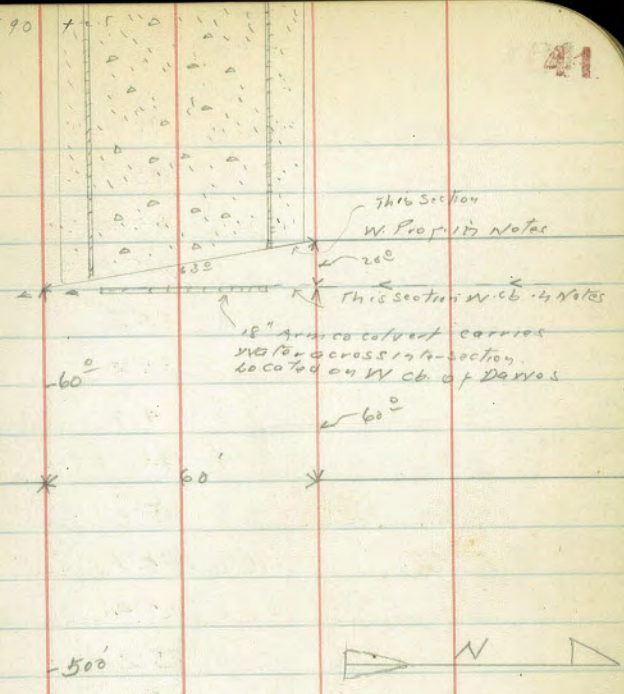 41
90 +
This Section
W. Prop. in Notes
20º
63º
This section W. cb. in Notes
18" Armco colvert carries
Water across intersection.
Located on W cb. of Dawos
60º
60º
60'
500'
N